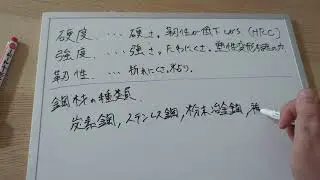 硬度 … 硬さ。靭性が低下しやす (HRC)
強度 … 強さ。たわみにくさ。塑性変形
靭性 … 折れにくさ。粘り。
鋼材の種類
炭素鋼, ステンレス鋼, 粉末冶金鋼,